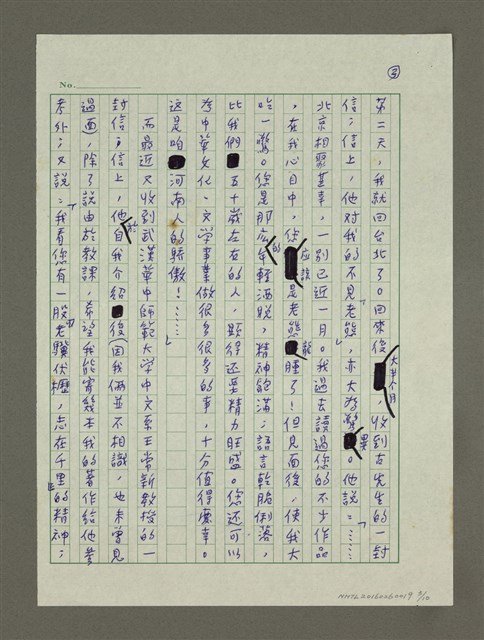 ③
No.
第二天，我就回台北了。回來後大半个月，收到古先生的一封
信；信上，他对我的不見老態，亦大为驚異。他說：「……
北京相聚甚幸，一別已近一月。我过去讀过您的不少作品
，在我心目中，您应該是老態龍腫了！但見面後，使我大
吃一驚。您是那的年輕洒脫，精神飽滿；語言乾脆俐落，
比我們五十歲左右的人，顯得还是精力旺盛。您还可以
为中華文化、文学事業做很多很多的事，十分值得慶幸。
这是咱河南人的驕傲！……」
而最近又收到武漢華中師範大学中文系王常新教授的一
封信；信上，他於自我介紹後（因我倆並不相識，也未曾見
過面，除了說由於教課，希望我能寄幾本我的著作給他參
考外；又說：「我看您有一股老驥伏櫪，志在千里的精神；
NMTL20160260019 3/10